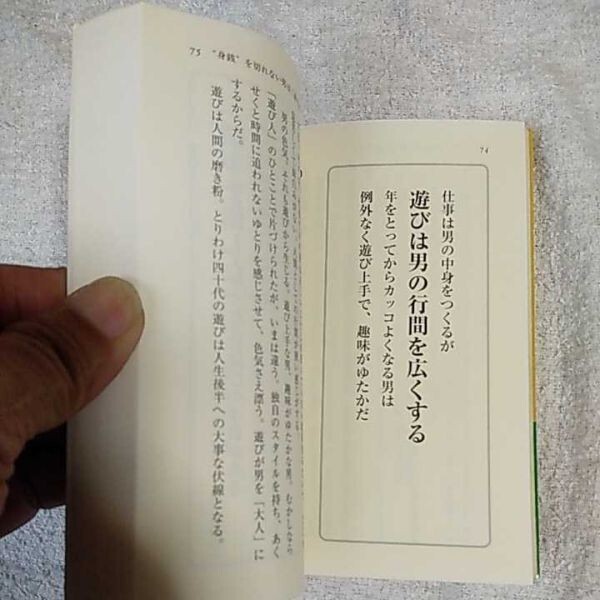 74
仕事は男の中身をつくるが
遊びは男の行間を広くする
年をとってからカッコよくなる男は
例外なく遊び上手で、趣味がゆたかだ
75 “身銭”を切れない男は
男の色気、それも遊びから生じる。遊び上手な男、趣味がゆたかな男。むかしなら
「遊び人」のひとことで片づけられたが、いまは違う。独自のスタイルを持ち、あく
せくと時間に追われないゆとりを感じさせて、色気さえ漂う。遊びが男を「大人」に
するからだ。
遊びは人間の磨き粉。とりわけ四十代の遊びは人生後半への大事な伏線となる。